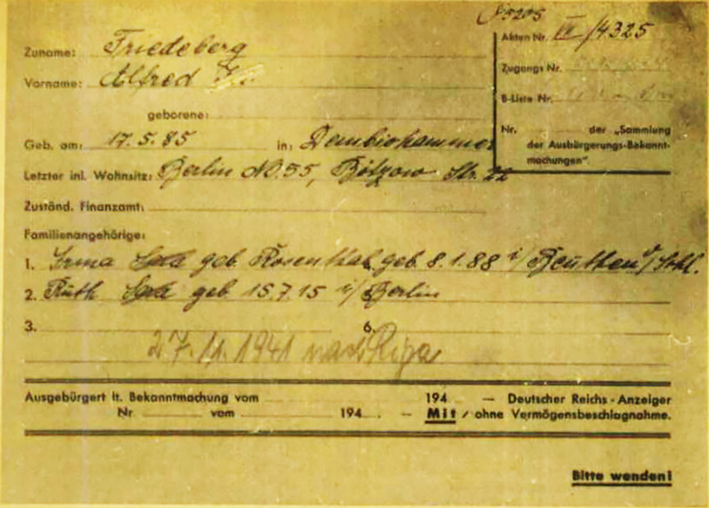 Akten Nr. IV/4325
Zuname: Friedeberg
Vorname: Alfred
Zugangs Nr.
geborene:
B-Liste Nr.
Geb. am: 17. 5. 85 in:
Nr. der „Sammlung
der Ausbürgerungs-Bekannt-
machungen".
Letzter inl. Wohnsitz: Berlin NO.55, Bötzow Str. 22
Zuständ. Finanzamt:
Familienangehörige:
1. Irma Sara geb. Rosenthal geb. 8.1.88 i/ Beuthen
2. Ruth Sara geb. 15.7.15 i/ Berlin
3. 6.
27.11.1941 nach Riga
Ausgebürgert lt. Bekanntmachung vom 194 — Deutscher Reichs-Anzeiger
Nr. vom 194 — Mit / ohne Vermögensbeschlagnahme.
Bitte wenden!